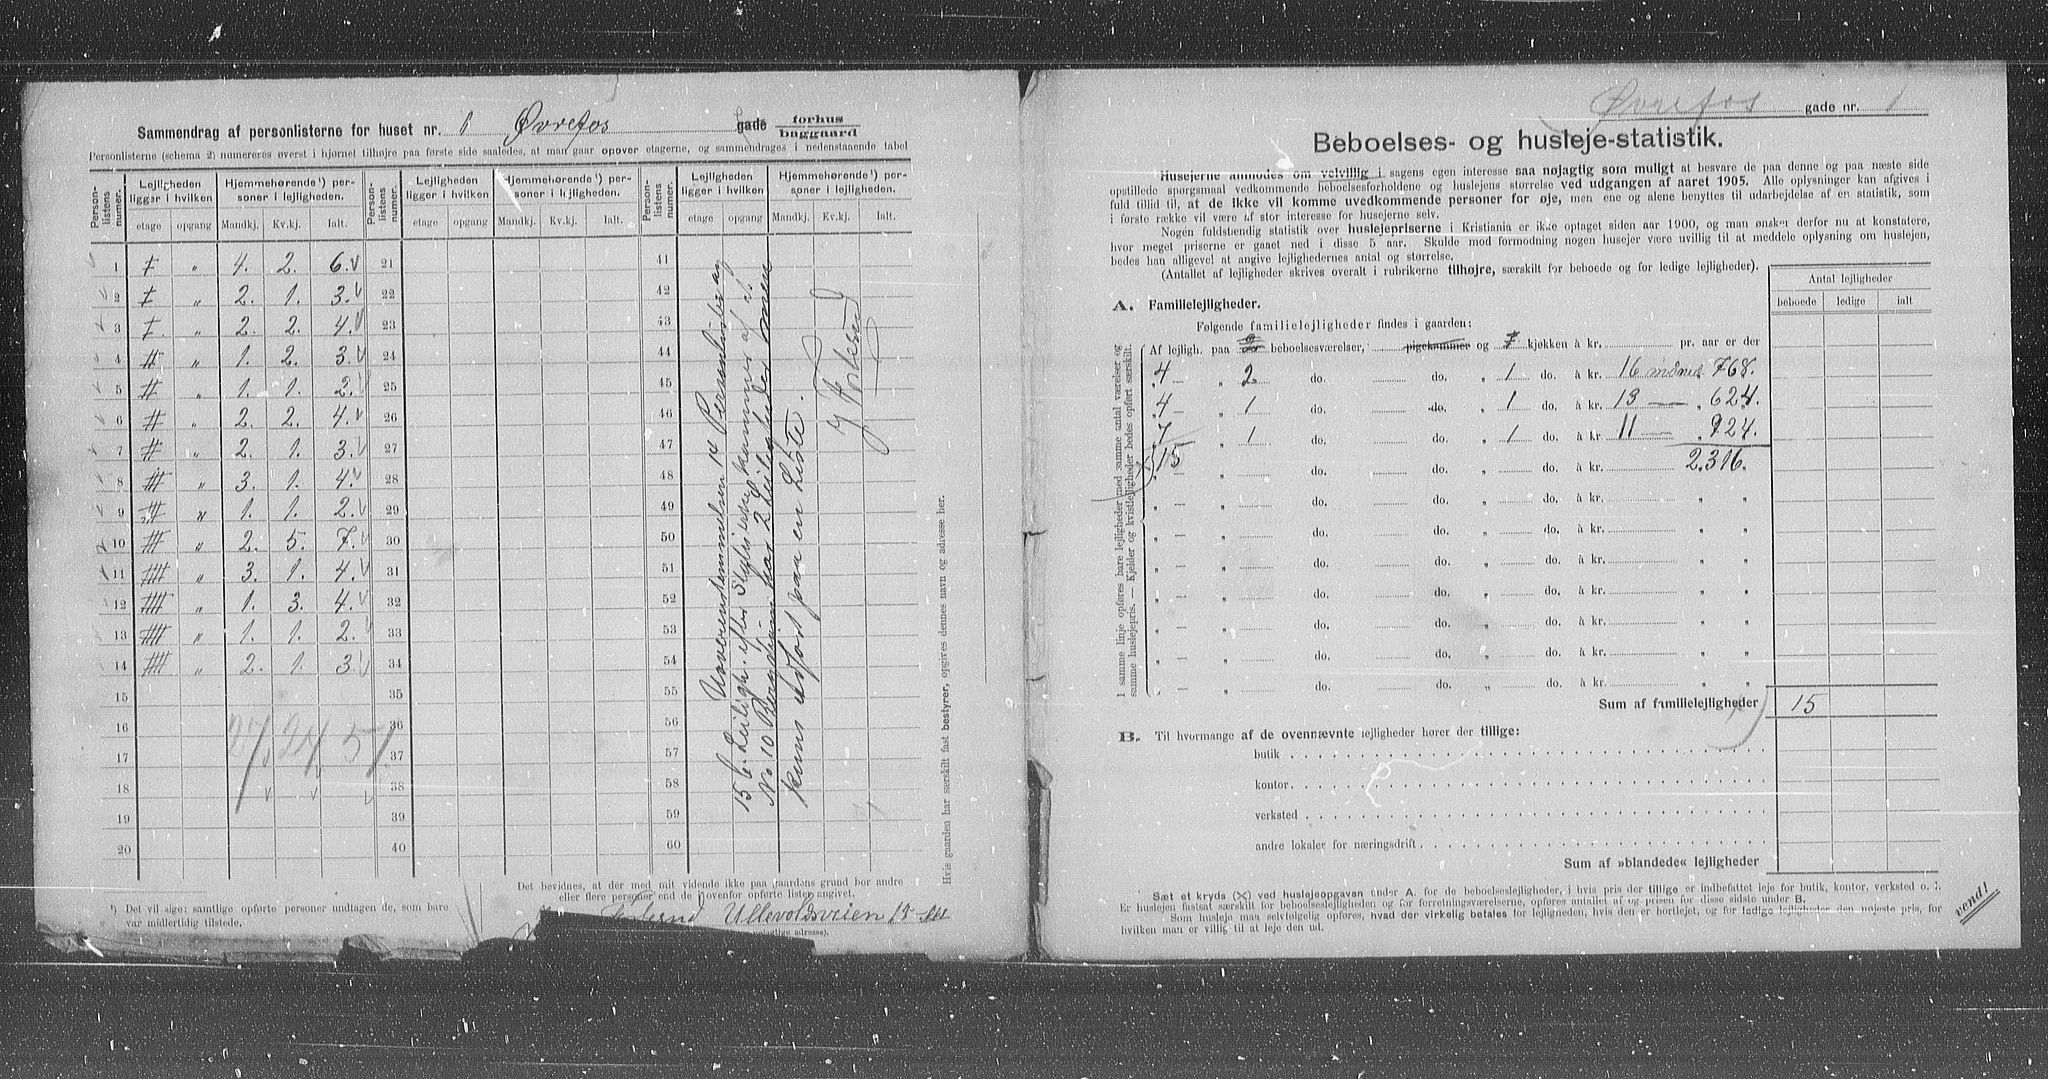 Sammendrag af personlisterne for huset nr. 1 Øvrefos gade forhus baggaard
Personlisterne (schema 2) numereres øverst i hjørnet tilhøjre paa første side saaledes, at man gaar opover etagerne, og sammendrages i nedenstaaende tabel
Person-listens numer. Lejligheden ligger i hvilken Hjemmehørende¹) personer i lejligheden. Person-listens numer. Lejligheden ligger i hvilken Hjemmehørende¹) personer i lejligheden. Person-listens numer. Lejligheden ligger i hvilken Hjemmehørende¹) personer i lejligheden.
etage opgang Mandkj. Kv.kj. Ialt. etage opgang Mandkj. Kv.kj. Ialt. etage opgang Mandkj. Kv.kj. Ialt.
1 I „ 4. 2. 6. 21 41
2 I „ 2. 1. 3. 22 42
3 I „ 2. 2. 4. 23 43
4 II „ 1. 2. 3. 24 44
5 II „ 1. 1. 2. 25 45
6 II „ 2. 2. 4. 26 46
7 II „ 2. 1. 3. 27 47
8 III „ 3. 1. 4. 28 48
9 III „ 1. 1. 2. 29 49
10 III „ 2. 5. 7. 30 50
11 IIII „ 3. 1. 4. 31 51
12 IIII „ 1. 3. 4. 32 52
13 IIII „ 1. 1. 2. 33 53
14 IIII „ 2. 1. 3. 34 54
15 35 55
16 27 24 51 36 56
17 37 57
18 38 58
19 39 59
20 40 60
Uoverendstemmelsen 14 Personlister og
15 b. Leiligh. efter kommer af at
No. 10 har 2 Leiligheder men
kuns opført paa en Liste.
Hvis gaarden har særskilt fast bestyrer, opgives dennes navn og adresse her.
Det bevidnes, at der med mit vidende ikke paa gaardens grund bor andre
eller flere personer end de ovenfor opførte lister angivet.
¹) Det vil sige: samtlige opførte personer undtagen de, som bare
var midlertidig tilstede.
Ullevoldsveien 15
adresse).
Øvrefos gade nr. 1
Beboelses- og husleje-statistik.
Husejerne anmodes om velvillig i sagens egen interesse saa nøjagtig som muligt at besvare de paa denne og paa næste side
opstillede spørgsmaal vedkommende beboelsesforholdene og huslejens størrelse ved udgangen af aaret 1905. Alle oplysninger kan afgives i
fuld tillid til, at de ikke vil komme uvedkommende personer for øje, men ene og alene benyttes til udarbejdelse af en statistik, som
i første række vil være af stor interesse for husejerne selv.
Nogen fuldstændig statistik over huslejepriserne i Kristiania er ikke optaget siden aar 1900, og man ønsker derfor nu at konstatere,
hvor meget priserne er gaaet ned i disse 5 aar. Skulde mod formodning nogen husejer være uvillig til at meddele oplysning om huslejen,
bedes han alligevel at angive lejlighedernes antal og størrelse.
(Antallet af lejligheder skrives overalt i rubrikerne tilhøjre, særskilt for beboede og for ledige lejligheder).
Antal lejligheder
beboede ledige ialt
A. Familielejligheder.
Følgende familielejligheder findes i gaarden:
I samme linje opføres bare lejligheder med samme antal værelser og
samme huslejepris. — Kjelder og kvistlejligheder bedes opført særskilt.
Af lejligh. paa beboelsesværelser, pigekammer og kjøkken à kr. pr. aar er der
4 — „ 2 do. do. „ 1 do. à kr. 16 måned. 768.
4 — „ 1 do. do. „ 1 do. à kr. 13 — 624.
7 — „ 1 do. do. „ 1 do. à kr. 11 — 924.
15 „ do. do. „ do. à kr. 2.316.
„ — „ do. do. „ do. à kr. „ „
„ — „ do. do. „ do. à kr. „ „
„ — „ do. do. „ do. à kr. „ „
„ — „ do. do. „ do. à kr. „ „
„ — „ do. do. „ do. à kr. „ „
„ — „ do. do. „ do. à kr. „ „
„ — „ do. do. „ do. à kr. „ „
Sum af familielejligheder 15
B. Til hvormange af de ovennævnte lejligheder hører der tillige:
butik
kontor
verksted
andre lokaler for næringsdrift
Sum af »blandede« lejligheder
Sæt et kryds (X) ved huslejeopgaven under A. for de beboelseslejligheder, i hvis pris der tillige er indbefattet leje for butik, kontor, verksted o. l.
Er huslejen fastsat særskilt for beboelseslejligheden og for forretningsværelserne, opføres antallet af og prisen for disse sidste under B.
Som husleje maa selvfølgelig opføres, hvad der virkelig betales for lejligheden, hvis den er bortlejet, og for ledige lejligheder den nøjeste pris, for
hvilken man er villig til at leje den ud.
vend!